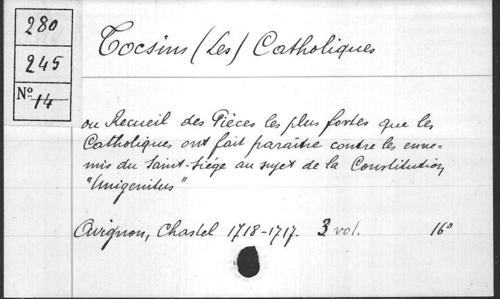 280
245
No 14
Tocsins (Les) Catholiques
ou Recueil des Pièces les plus fortes que les
Catholiques ont fait paraître contre les enne-
mis du Saint-Siége au sujet de la Constitution
"Unigenitus"
Avignon, Chastel 1718-1717. 3 vol. 16°